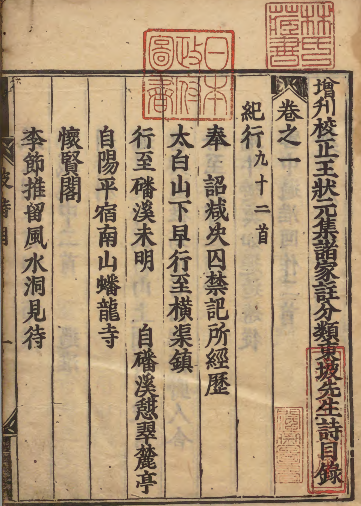 增刊校正王狀元集諸家註分類東坡先生詩目錄
卷之一
紀行九十二首
奉 詔減决囚禁記所經歷
太白山下早行至橫渠鎮
行至磻溪未明 自磻溪憩翠麓亭
自陽平宿南山蟠龍寺
懷賢閣
李節推留風水洞見待
日本
政府
圖書
林氏
藏書